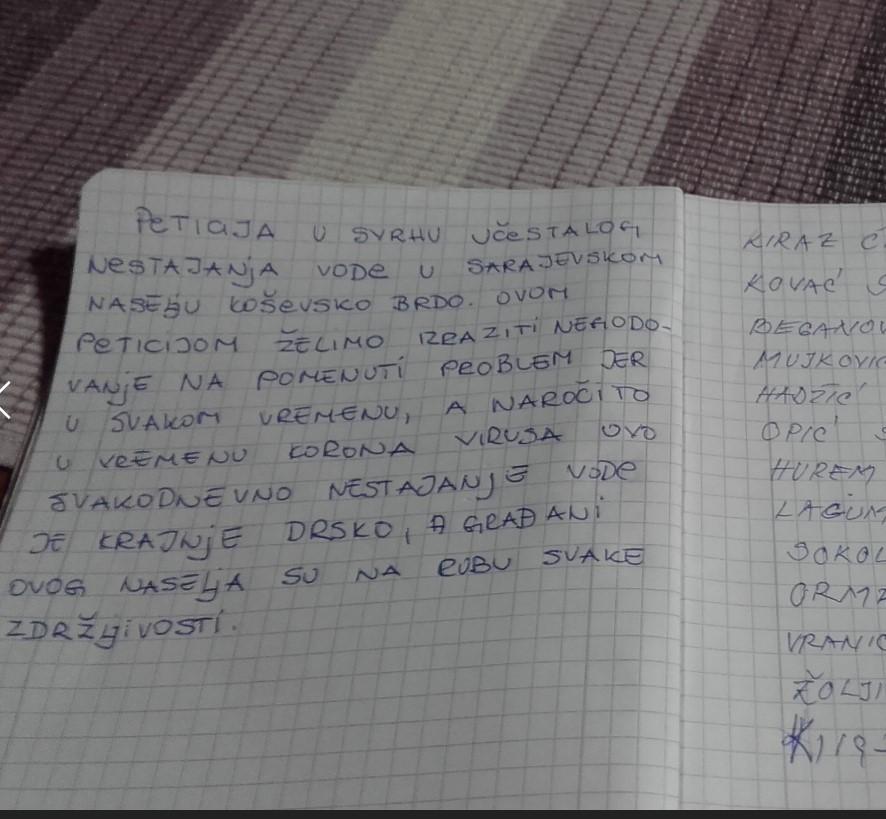 PETICIJA U SVRHU UČESTALOG
NESTAJANJA VODE U SARAJEVSKOM
NASELJU KOŠEVSKO BRDO. OVOM
PETICIJOM ŽELIMO IZRAZITI NEGODO-
VANJE NA POMENUTI PROBLEM JER
U SVAKOM VREMENU, A NAROČITO
U VREMENU KORONA VIRUSA OVO
SVAKODNEVNO NESTAJANJE VODE
JE KRAJNJE DRSKO, A GRAĐANI
OVOG NASELJA SU NA RUBU SVAKE
ZDRŽLJIVOSTI.
KIRAZ
KOVAČ
BEGANOV
MUJKOVIĆ
HADŽIĆ
OPIĆ
HUREM
LAGUM
SOKOL
VRANIĆ